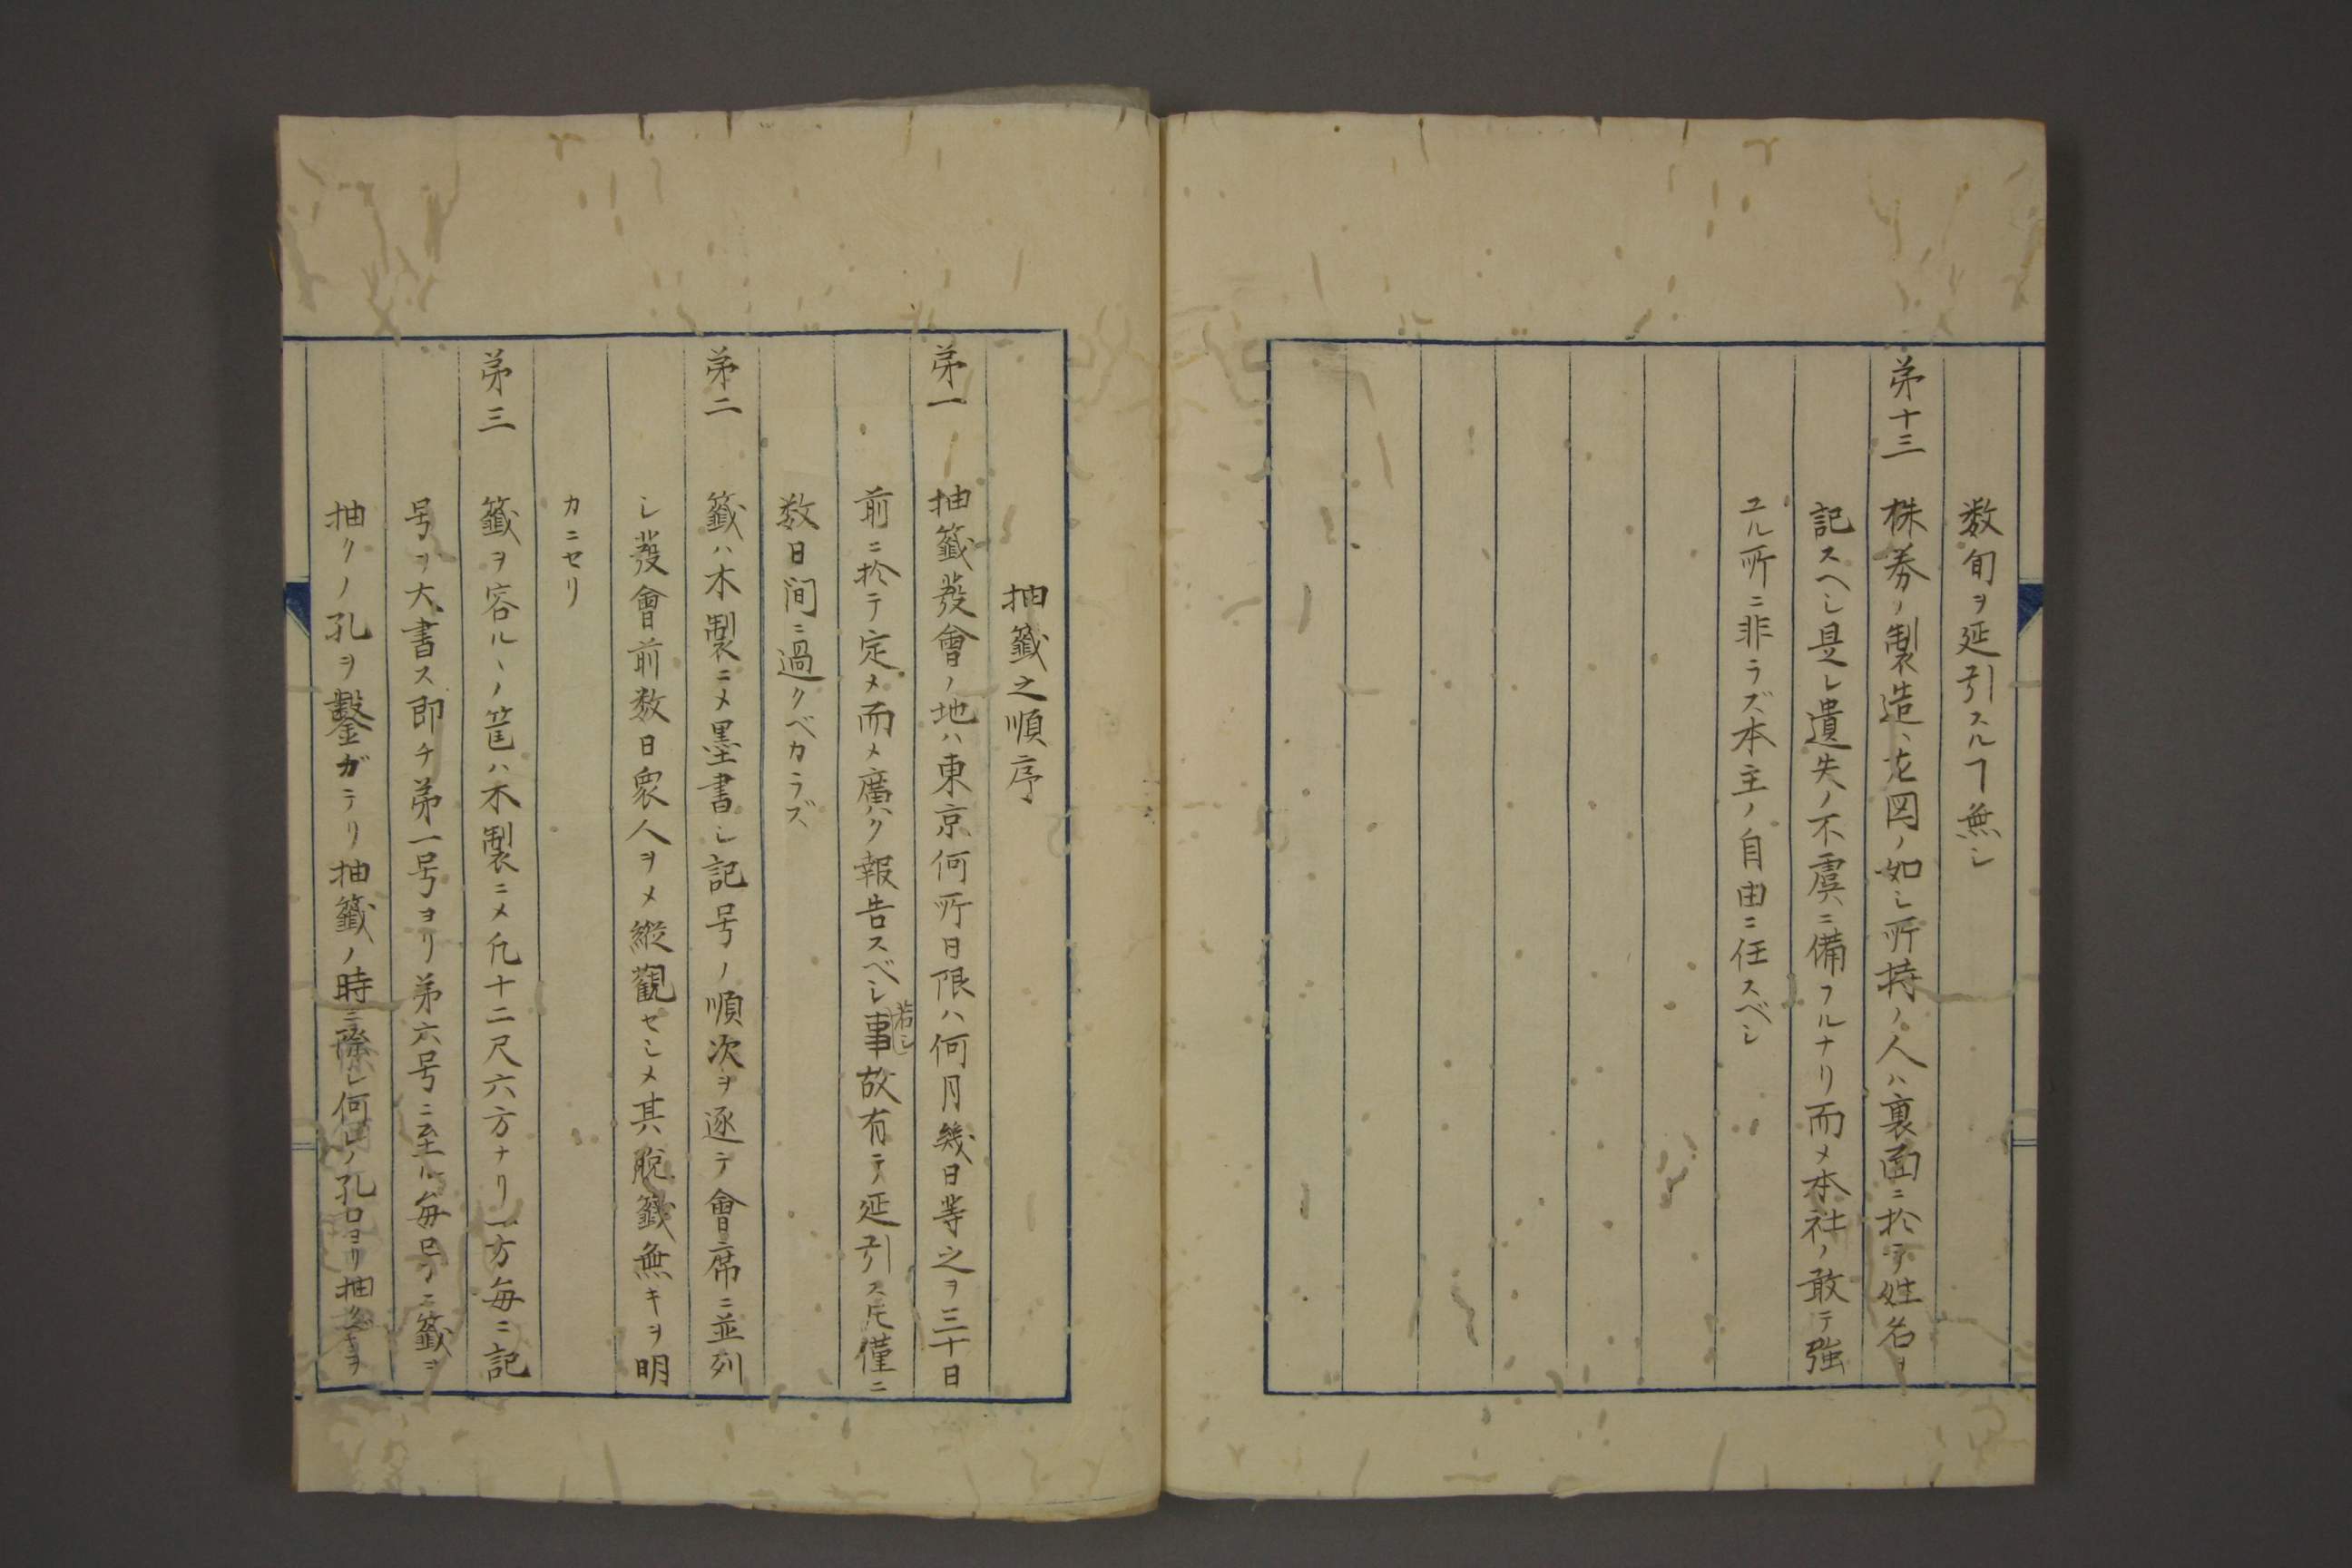 数旬ヲ延引スルヿ無シ
第十三 株券ノ製造ハ左図ノ如シ所持ノ人ハ裏面ニ於テ姓名ヲ
記スヘシ是レ遺失ノ不虞ニ備フルナリ而メ本社ノ敢テ強
ユル所ニ非ラズ本主ノ自由ニ任スベシ
抽籤之順序
第一 抽籤發會ノ地ハ東京何所日限ハ何月幾日等之ヲ三十日
前ニ於テ定メ而メ廣ク報告スベシ若シ事故有テ延引スㇳモ僅ニ
数日间ニ過クベカラズ
第二 籤ハ木製ニメ墨書シ記号ノ順次ヲ逐テ會席ニ並列
シ發會前数日衆人ヲメ縦觀セシメ其脱籤無キヲ明
カニセリ
第三 籤ヲ容ルヽノ筐ハ木製ニメ凢十二尺六方ナリ一方毎ニ記
号ヲ大書ス即チ第一号ヨリ第六号ニ至ル毎号ニ籤ヲ
抽クノ孔ヲ鑿ガテリ抽籤ノ時ニ際シ何レノ孔口ヨリ抽クベキヲ